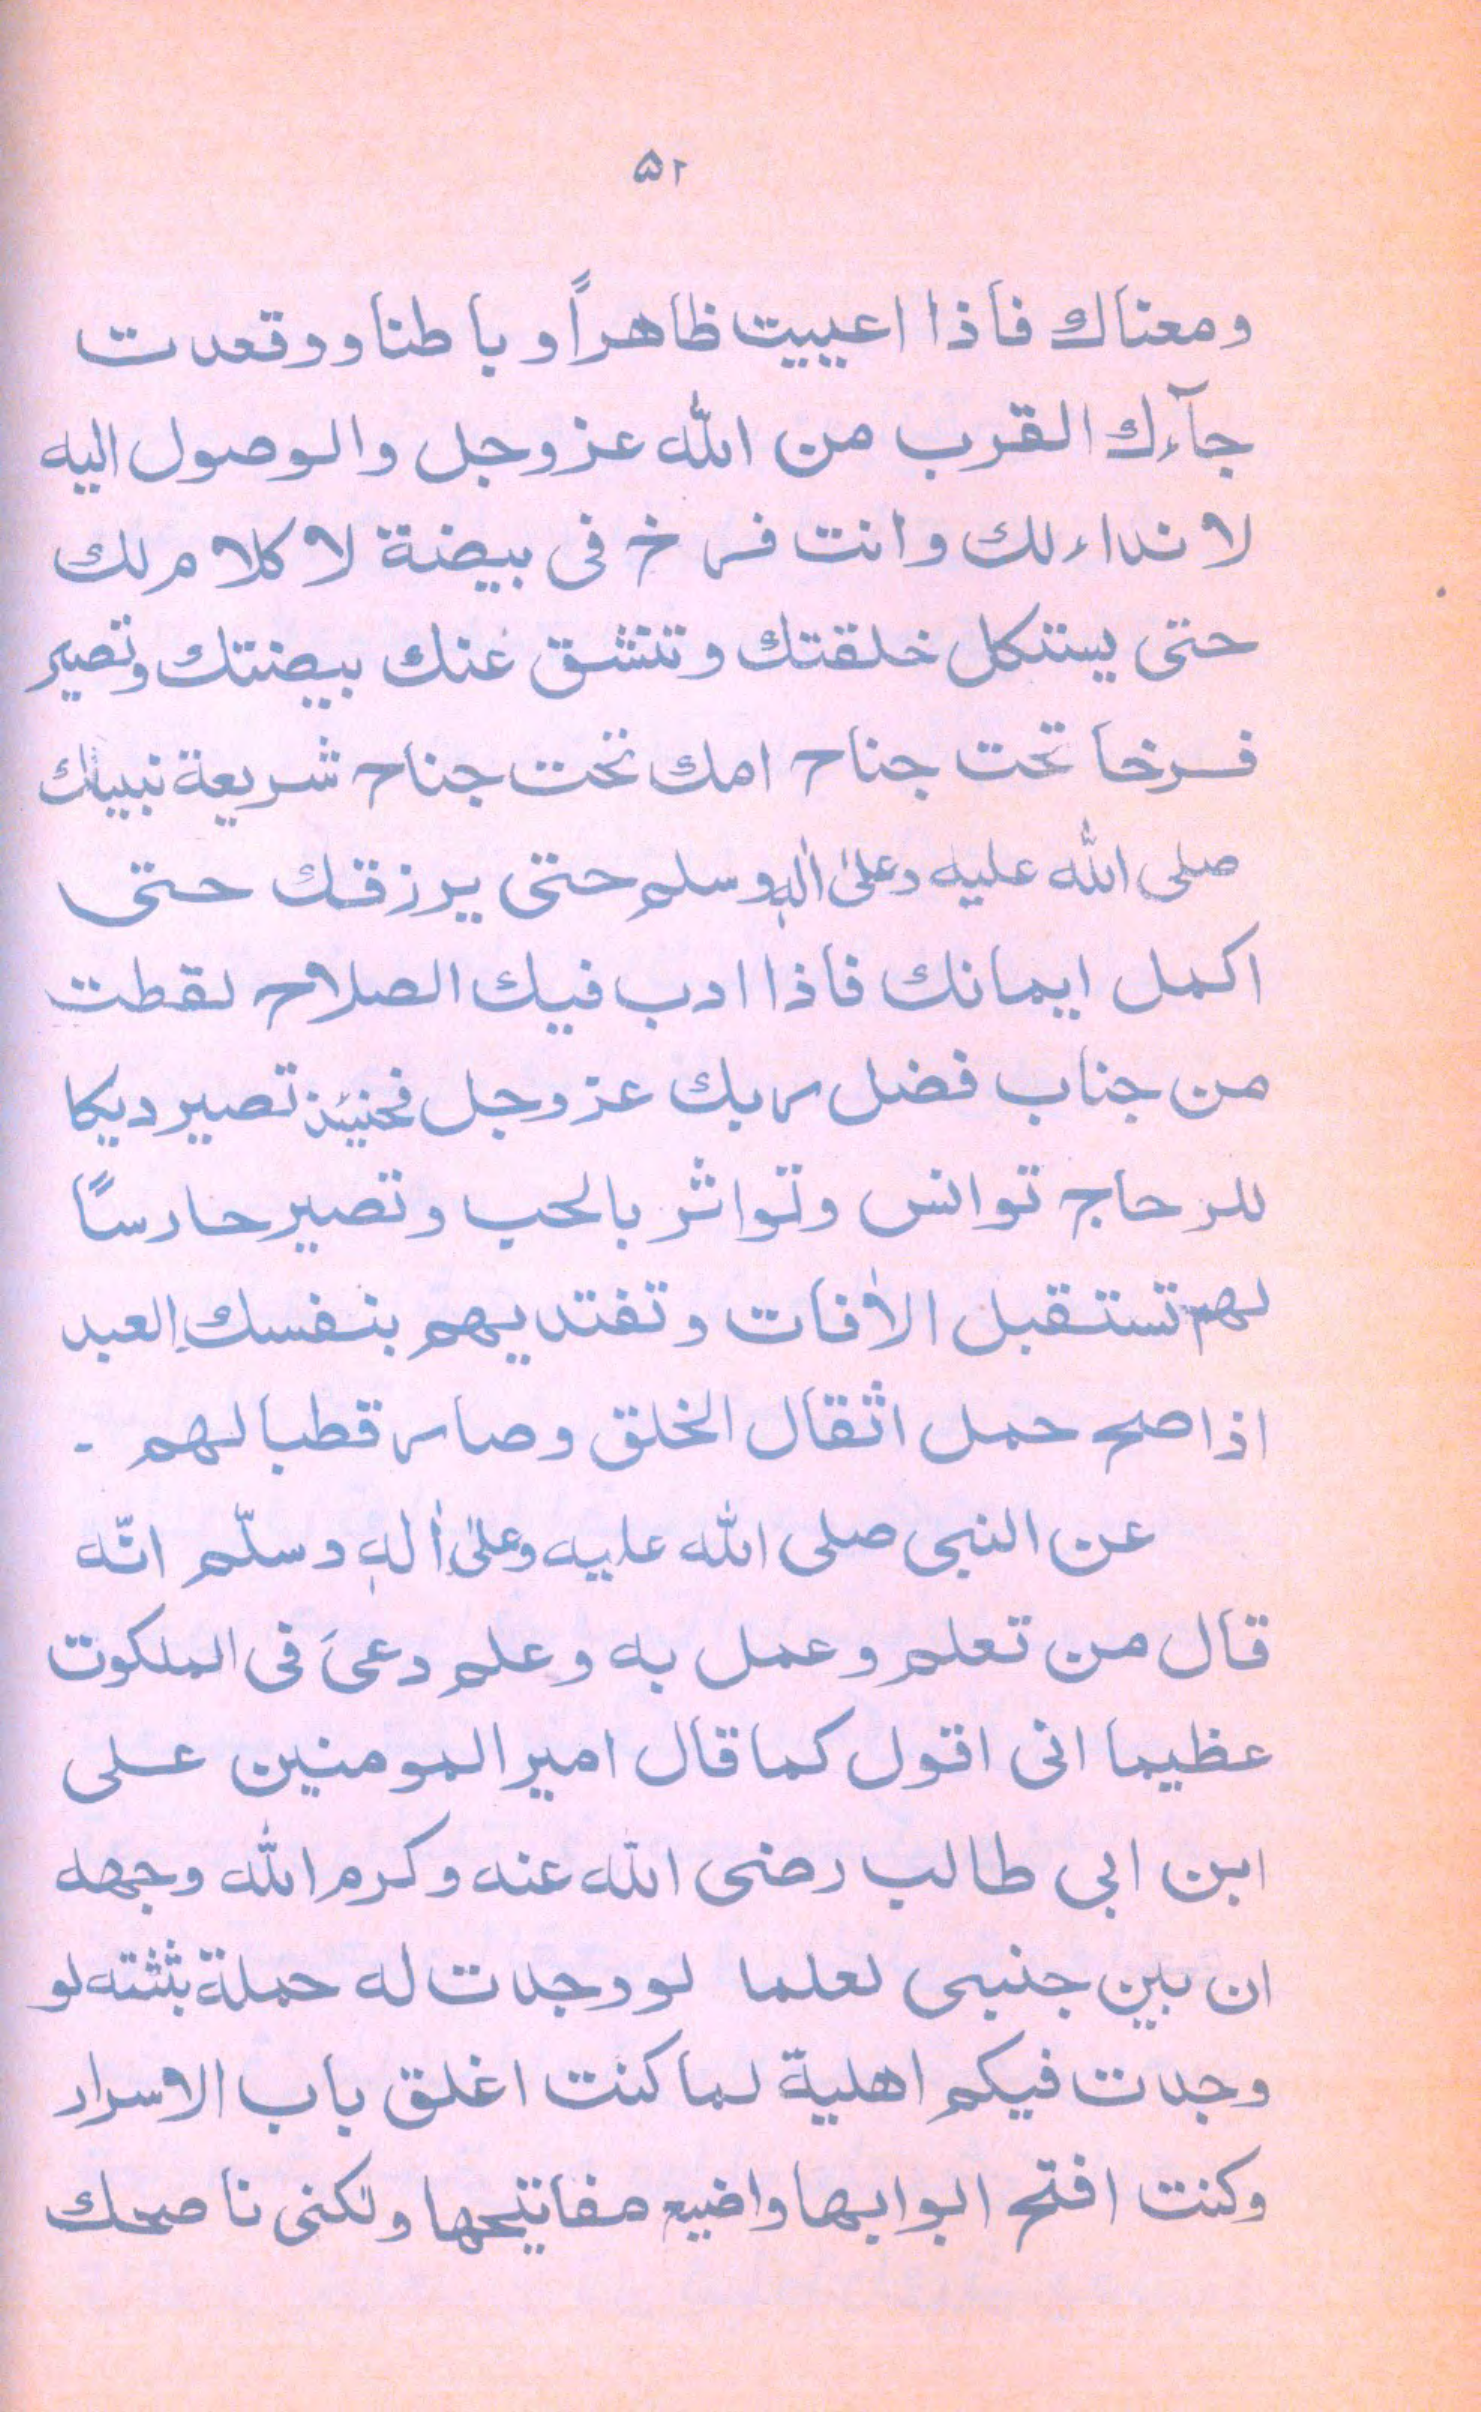 ۵۲
ومعناك فاذا اعييت ظاهراً و باطنا ووقعدت
جآءك القرب من الله عزوجل والوصول اليه
لا نداء لك وانت فرخ فى بيضة لا كلام لك
حتى يستكل خلقتك وتنشق عنك بيضتك وتصير
فرخا تحت جناح امك تحت جناح شريعة نبيك
صلى الله عليه وعلىٰ اٰلهٖ وسلم حتى يرزقك حتى
اكمل ايمانك فاذا ادب فيك الصلاح لقطت
من جناب فضل ربك عزوجل فحنيئذ تصير ديكا
للرحاج توانس وتواثر بالحب وتصير حارسًا
لهم تستقبل الاٰفات وتفتديهم بنفسك العبد
اذا صح حمل اثقال الخلق وصار قطبا لهم ۔
عن النبى صلى الله عليه وعلىٰ اٰلهٖ وسلّم انّه
قال من تعلم وعمل به وعلم دعىَ فى الملكوت
عظيما انى اقول كما قال امير المومنين على
ابن ابى طالب رضى الله عنه وكرم الله وجهه
ان بين جنبى لعلما لو وجدت له حملة بثثته لو
وجدت فيكم اهلية لما كنت اغلق باب الاسرار
وكنت افتح ابوابها واضيع مفاتيحها ولكنى ناصحك